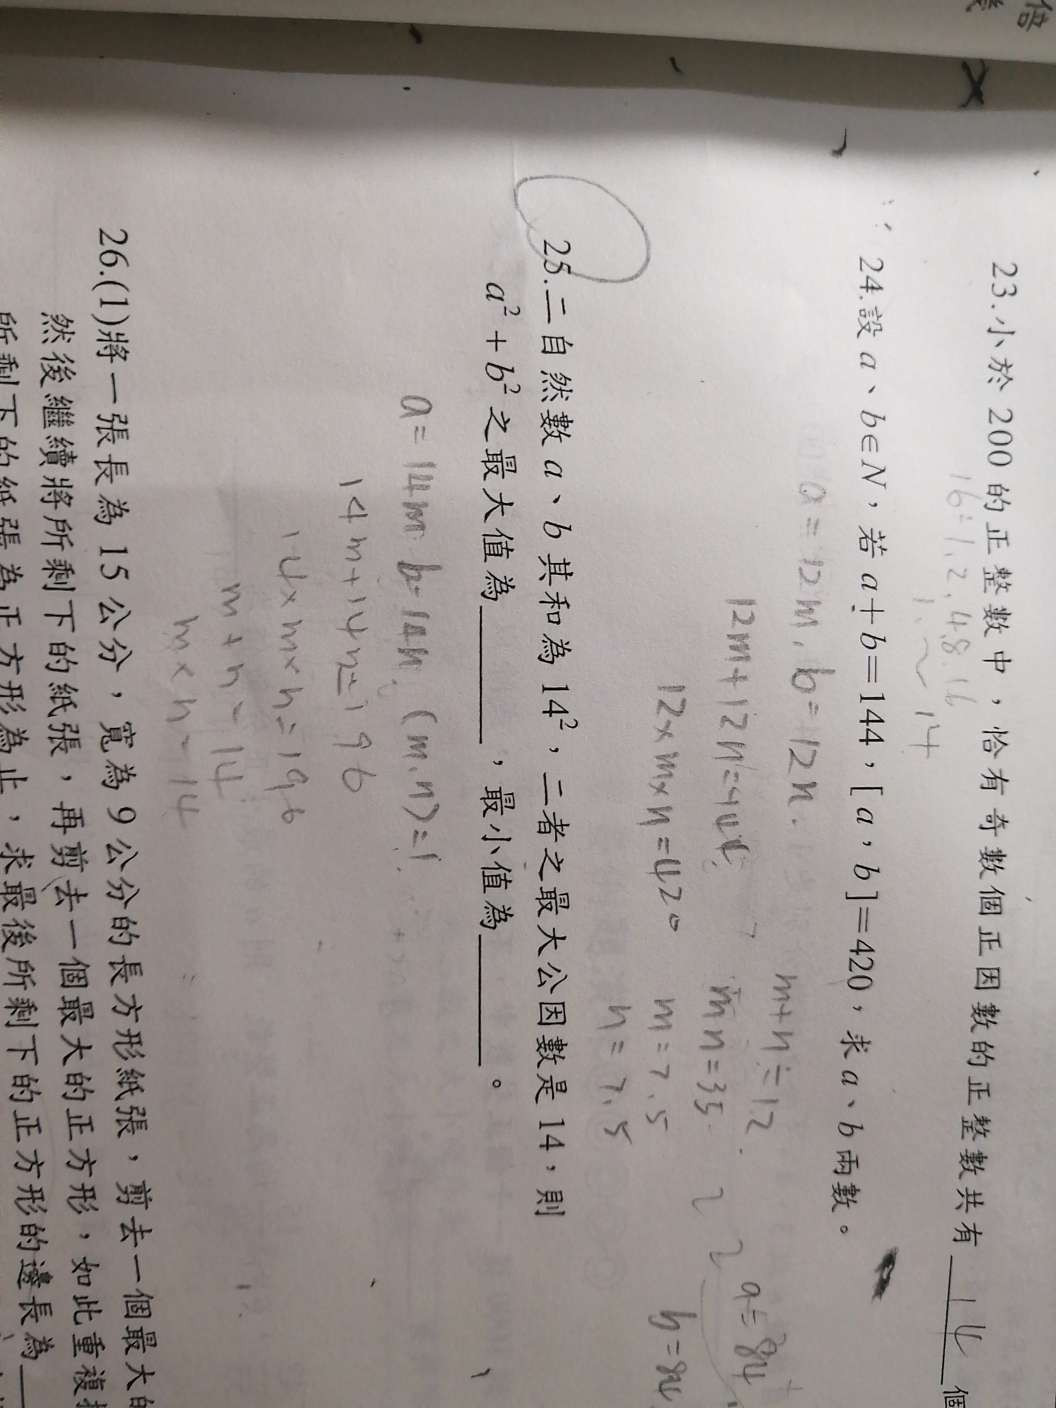 倍
23.小於 200 的正整數中，恰有奇數個正因數的正整數共有 14 個
16=1.2.4.8.16
1.~14
24.設 a、b∈N，若 a+b=144，[a，b]=420，求 a、b 兩數。
a=12m, b=12n.
12m+12n=144
m+n=12
12×m×n=420
mn=35
m=7.5
n=7.5
a=84
25.二自然數 a、b 其和為 14²，二者之最大公因數是 14，則
a²+b²之最大值為______，最小值為______。
a=14m b=14n. (m.n)=1
14m+14n=196
14×m×n=196
m+n=14
m×n=14
26.(1)將一張長為 15 公分，寬為 9 公分的長方形紙張，剪去一個最大的
然後繼續將所剩下的紙張，再剪去一個最大的正方形，如此重複
所剩下的紙張為正方形為止，求最後所剩下的正方形的邊長為